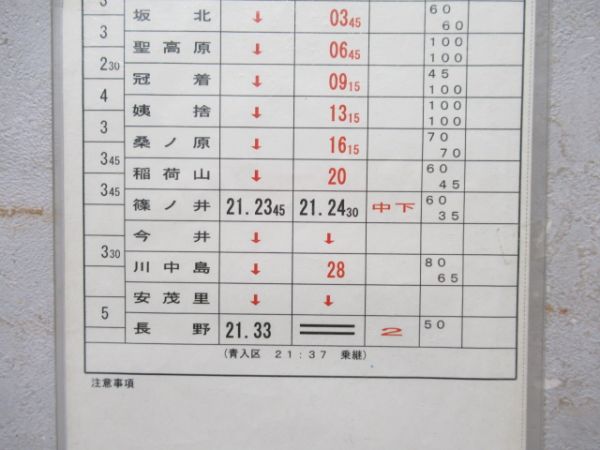 3
坂北 ↓ 03 45 60 60
3
聖高原 ↓ 06 45 100 100
2 30
冠着 ↓ 09 15 45 100
4
姨捨 ↓ 13 15 100 100
3
桑ノ原 ↓ 16 15 70 70
3 45
稲荷山 ↓ 20 60 45
3 45
篠ノ井 21.23 45 21.24 30 中下 60 35
今井 ↓ ↓
3 30
川中島 ↓ 28 80 65
安茂里 ↓ ↓
5
長野 21.33 2 50
(青入区 21:37 乗継)
注意事項